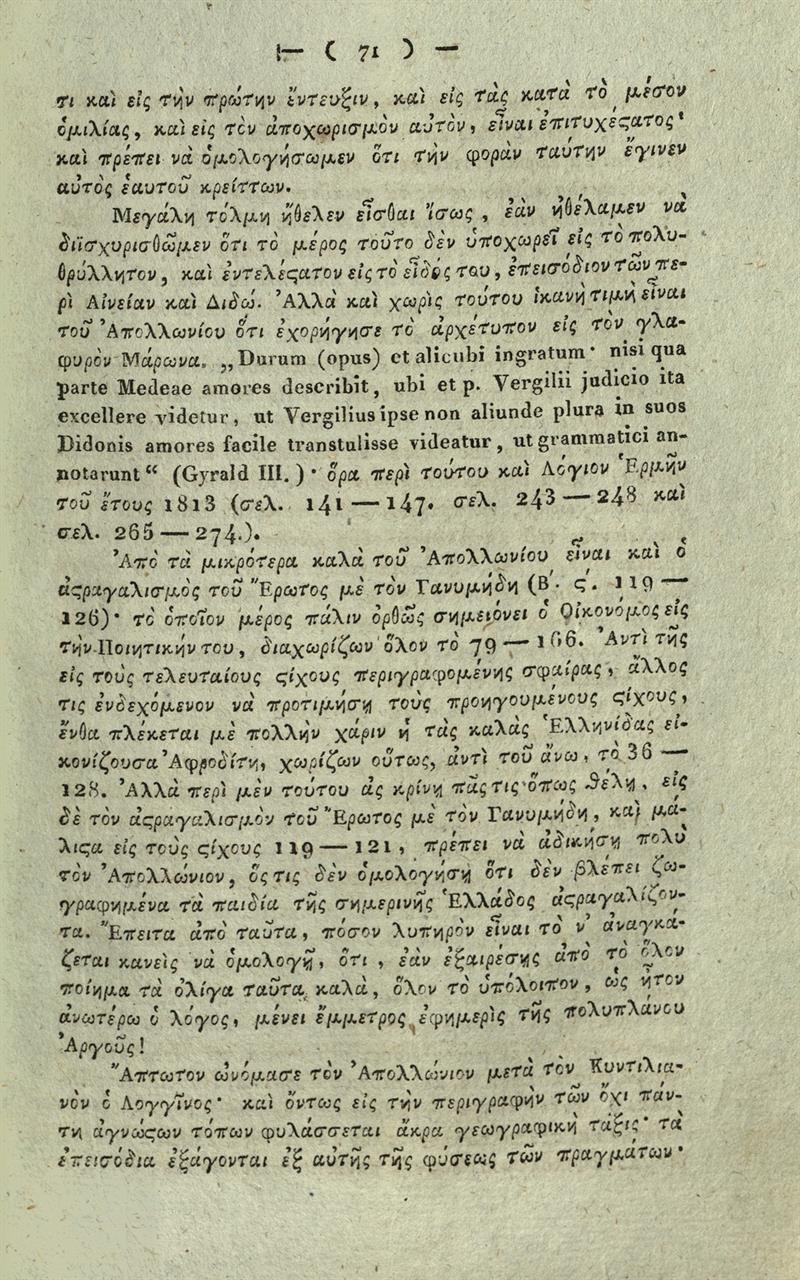 — ( 71 ) —
τι καὶ εἰς τὴν πρώτην ἔντευξιν, καὶ εἰς τὰς κατὰ τὸ μέσον
ὁμιλίας, καὶ εἰς τὸν ἀποχωρισμὸν αὐτὸν, εἶναι ἐπιτυχέϛατος·
καὶ πρέπει νὰ ὁμολογήσωμεν ὅτι τὴν φορὰν ταύτην ἔγινεν
αὐτὸς ἑαυτοῦ κρείττων.
Μεγάλη τόλμη ἤθελεν εἶσθαι ἴσως, ἐὰν ἠθέλαμεν νὰ
διϊσχυρισθῶμεν ὅτι τὸ μέρος τοῦτο δὲν ὑποχωρεῖ εἰς τὸ πολυ-
θρύλλητον, καὶ ἐντελέϛατον εἰς τὸ εἶδός του, ἐπεισόδιον τῶν πε-
ρὶ Αἰνείαν καὶ Διδώ. Ἀλλὰ καὶ χωρὶς τούτου ἱκανὴ τιμὴ εἶναι
τοῦ Ἀπολλωνίου ὅτι ἐχορήγησε τὸ ἀρχέτυπον εἰς τὸν γλα-
φυρὸν Μάρωνα. „Durum (opus) et alicubi ingratum· nisi qua
parte Medeae amores describit, ubi et p. Vergilii judicio ita
excellere videtur, ut Vergilius ipse non aliunde plura in suos
Didonis amores facile transtulisse videatur, ut grammatici an-
notarunt“ (Gyrald III.)· ὅρα περὶ τούτου καὶ Λόγιον Ἑρμῆν
τοῦ ἔτους 1813 (σελ. 141 — 147. σελ. 243 — 248 καὶ
σελ. 265 — 274.).
Ἀπὸ τὰ μικρότερα καλὰ τοῦ Ἀπολλωνίου εἶναι καὶ ὁ
ἀϛραγαλισμὸς τοῦ Ἔρωτος μὲ τὸν Γανυμήδη (Β΄. ϛ. 119 —
126)· τὸ ὁποῖον μέρος πάλιν ὀρθῶς σημειόνει ὁ Οἰκονόμος εἰς
τὴν Ποιητικήν του, διαχωρίζων ὅλον τὸ 79 — 166. Ἀντὶ τῆς
εἰς τοὺς τελευταίους ϛίχους περιγραφομένης σφαίρας, ἄλλος
τις ἐνδεχόμενον νὰ προτιμήσῃ τοὺς προηγουμένους ϛίχους,
ἔνθα πλέκεται μὲ πολλὴν χάριν ἡ τὰς καλὰς Ἑλληνίδας εἰ-
κονίζουσα Ἀφροδίτη, χωρίζων οὕτως, ἀντὶ τοῦ ἄνω, τὸ 36 —
128. Ἀλλὰ περὶ μὲν τούτου ἂς κρίνῃ πᾶς τις ὅπως θέλῃ, εἰς
δὲ τὸν ἀϛραγαλισμὸν τοῦ Ἔρωτος μὲ τὸν Γανυμήδη, καὶ μά-
λιϛα εἰς τοὺς ϛίχους 119 — 121, πρέπει νὰ ἀδικήσῃ πολὺ
τὸν Ἀπολλώνιον, ὅς τις δὲν ὁμολογήσῃ ὅτι δὲν βλέπει ζω-
γραφημένα τὰ παιδία τῆς σημερινῆς Ἑλλάδος ἀϛραγαλίζον-
τα. Ἔπειτα ἀπὸ ταῦτα, πόσον λυπηρὸν εἶναι τὸ ν' ἀναγκά-
ζεται κανεὶς νὰ ὁμολογῇ, ὅτι, ἐὰν ἐξαιρέσῃς ἀπὸ τὸ ὅλον
ποίημα τὰ ὀλίγα ταῦτα καλὰ, ὅλον τὸ ὑπόλοιπον, ὡς ἦτον
ἀνωτέρω ὁ λόγος, μένει ἔμμετρος ἐφημερὶς τῆς πολυπλάνου
Ἀργοῦς!
Ἄπτωτον ὠνόμασε τὸν Ἀπολλώνιον μετὰ τὸν Κυντιλια-
νὸν ὁ Λογγῖνος· καὶ ὄντως εἰς τὴν περιγραφὴν τῶν ὄχι πάν-
τη ἀγνώϛων τόπων φυλάσσεται ἄκρα γεωγραφικὴ τάξις· τὰ
ἐπεισόδια ἐξάγονται ἐξ αὐτῆς τῆς φύσεως τῶν πραγμάτων·